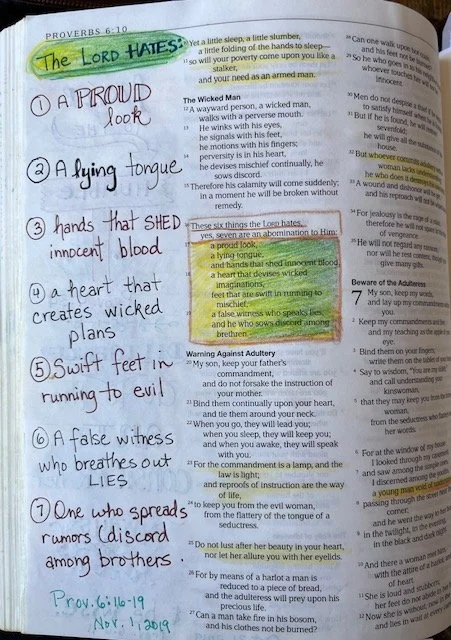 PROVERBS 6:10
The LORD HATES:
① A PROUD
look
② A lying tongue
③ hands that SHED
innocent blood
④ a heart that
creates wicked
plans
⑤ Swift feet in
running to evil
⑥ A false witness
who breathes out
LIES
⑦ One who spreads
rumors (discord
among brothers.
Prov. 6:16-19
Nov. 1, 2019
Yet a little sleep, a little slumber,
a little folding of the hands to sleep—
so will your poverty come upon you like a
stalker,
and your need as an armed man.
The Wicked Man
12 A wayward person, a wicked man,
walks with a perverse mouth.
13 He winks with his eyes,
he signals with his feet,
he motions with his fingers;
14 perversity is in his heart,
he devises mischief continually, he
sows discord.
15 Therefore his calamity will come suddenly;
in a moment he will be broken without
remedy.
These six things the LORD hates,
yes, seven are an abomination to Him:
a proud look,
a lying tongue,
and hands that shed innocent blood,
a heart that devises wicked
imaginations,
feet that are swift in running to
mischief,
a false witness who speaks lies,
and he who sows discord among
brethren.
Warning Against Adultery
20 My son, keep your father's
commandment,
and do not forsake the instruction of
your mother.
21 Bind them continually upon your heart,
and tie them around your neck.
22 When you go, they will lead you;
when you sleep, they will keep you;
and when you awake, they will speak
with you.
23 For the commandment is a lamp, and the
law is light;
and reproofs of instruction are the way
of life,
24 to keep you from the evil woman,
from the flattery of the tongue of a
seductress.
25 Do not lust after her beauty in your heart,
nor let her allure you with her eyelids.
26 For by means of a harlot a man is
reduced to a piece of bread,
and the adulteress will prey upon his
precious life.
27 Can a man take fire in his bosom,
and his clothes not be burned?
28 Can one walk upon hot
and his feet not be
29 So he who goes in to his
whoever touches her will
innocent.
30 Men do not despise a thief if he
to satisfy himself when he
31 But if he is found, he will
sevenfold;
he will give all the substance
house.
32 But whoever commits adultery
woman lacks understanding
he who does it destroys
33 A wound and dishonor will he get,
and his reproach will not be
34 For jealousy is the rage of a man;
therefore he will not spare
of vengeance.
35 He will not regard any ransom,
nor will he rest content, though
give many gifts.
Beware of the Adulteress
7 My son, keep my words,
and lay up my commandments
you.
2 Keep my commandments and live,
and my teaching as the apple of
eye.
3 Bind them on your fingers,
write them on the table of your
4 Say to wisdom, "You are my sister,"
and call understanding your
kinswoman,
5 that they may keep you from the
woman,
from the seductress who flatters
her words.
6 For at the window of my house
I looked through my casement,
7 and saw among the simple ones,
I discerned among the youths,
a young man void of
8 passing through the street near
corner;
and he went the way to her
9 in the twilight, in the evening,
in the black and dark night.
10 And there a woman met him,
with the attire of a harlot, and
of heart.
11 She is loud and stubborn;
her feet do not abide in her
12 Now she is without, now in
and lies in wait at every corner.